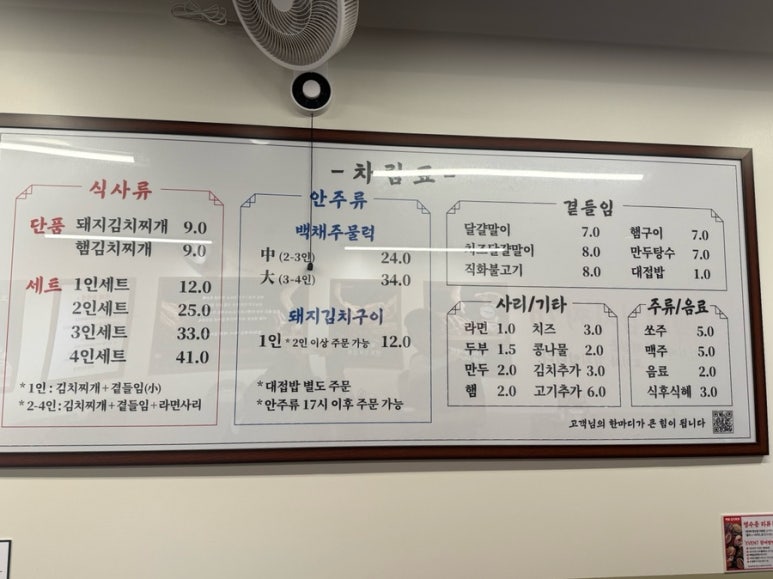 - 차림표 -
식사류
단품 돼지김치찌개 9.0
햄김치찌개 9.0
세트 1인세트 12.0
2인세트 25.0
3인세트 33.0
4인세트 41.0
* 1인 : 김치찌개 + 곁들임(小)
* 2-4인 : 김치찌개 + 곁들임 + 라면사리
안주류
백채주물럭
中 (2-3인) 24.0
大 (3-4인) 34.0
돼지김치구이
1인 * 2인 이상 주문 가능 12.0
* 대접밥 별도 주문
* 안주류 17시 이후 주문 가능
곁들임
달걀말이 7.0
치즈달걀말이 8.0
직화불고기 8.0
햄구이 7.0
만두탕수 7.0
대접밥 1.0
사리/기타
라면 1.0
두부 1.5
만두 2.0
햄 2.0
치즈 3.0
콩나물 2.0
김치추가 3.0
고기추가 6.0
주류/음료
쏘주 5.0
맥주 5.0
음료 2.0
식후식혜 3.0
고객님의 한마디가 큰 힘이 됩니다